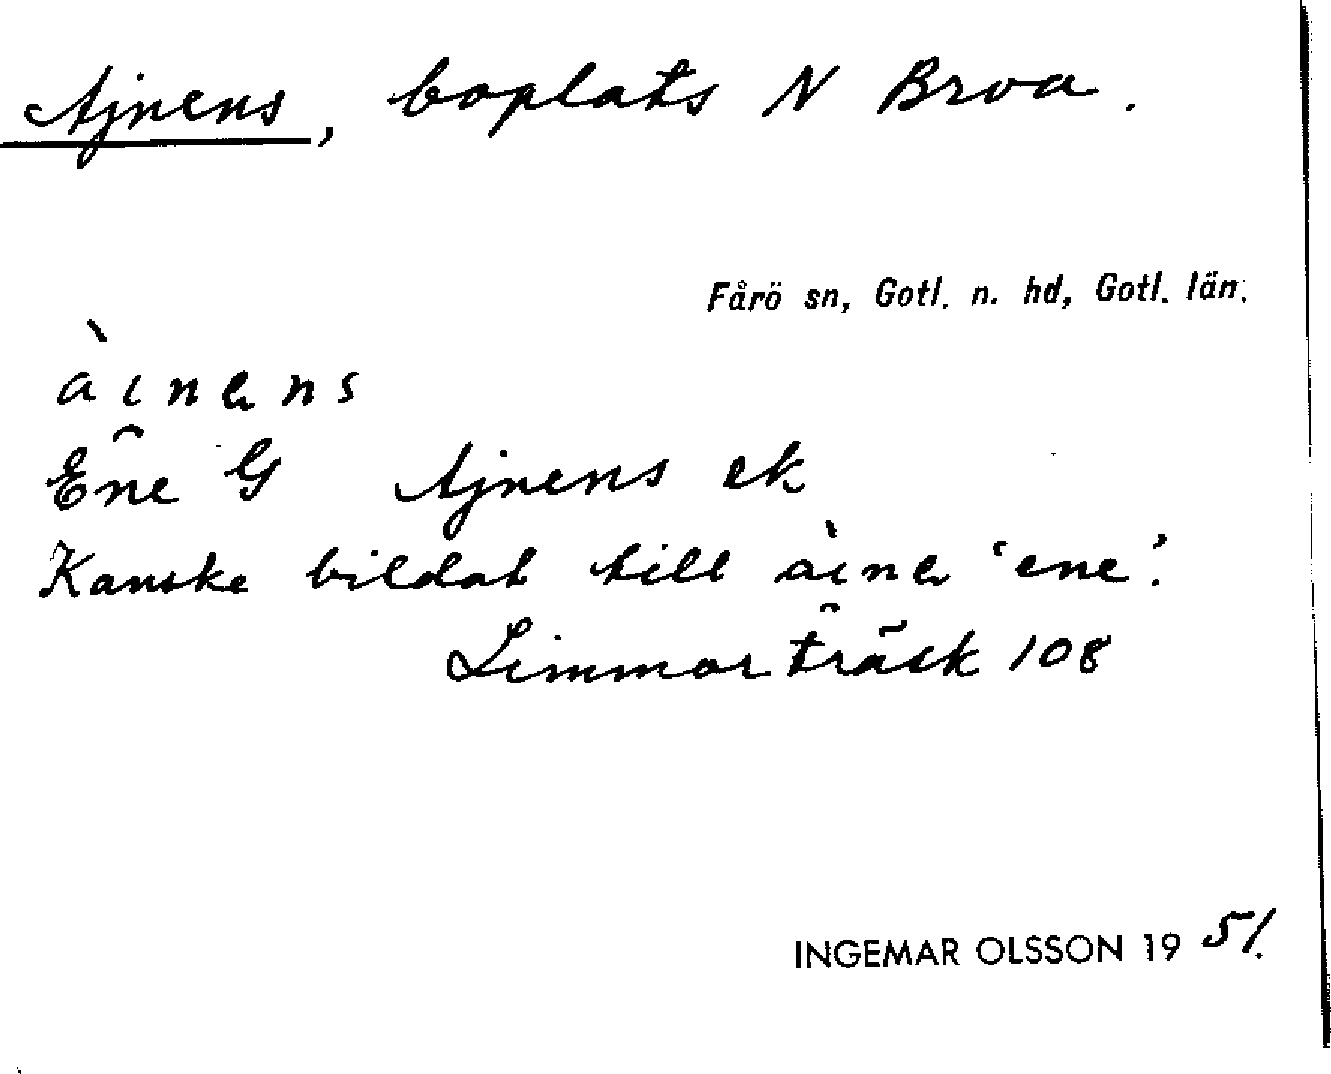 Ajnens, boplats N Broa.
Fårö sn, Gotl. n. hd, Gotl. län.
àinens
Ene G Ajnens ek
Kanske bildat till àine 'ene'.
Limmorträsk 108
INGEMAR OLSSON 19 51.